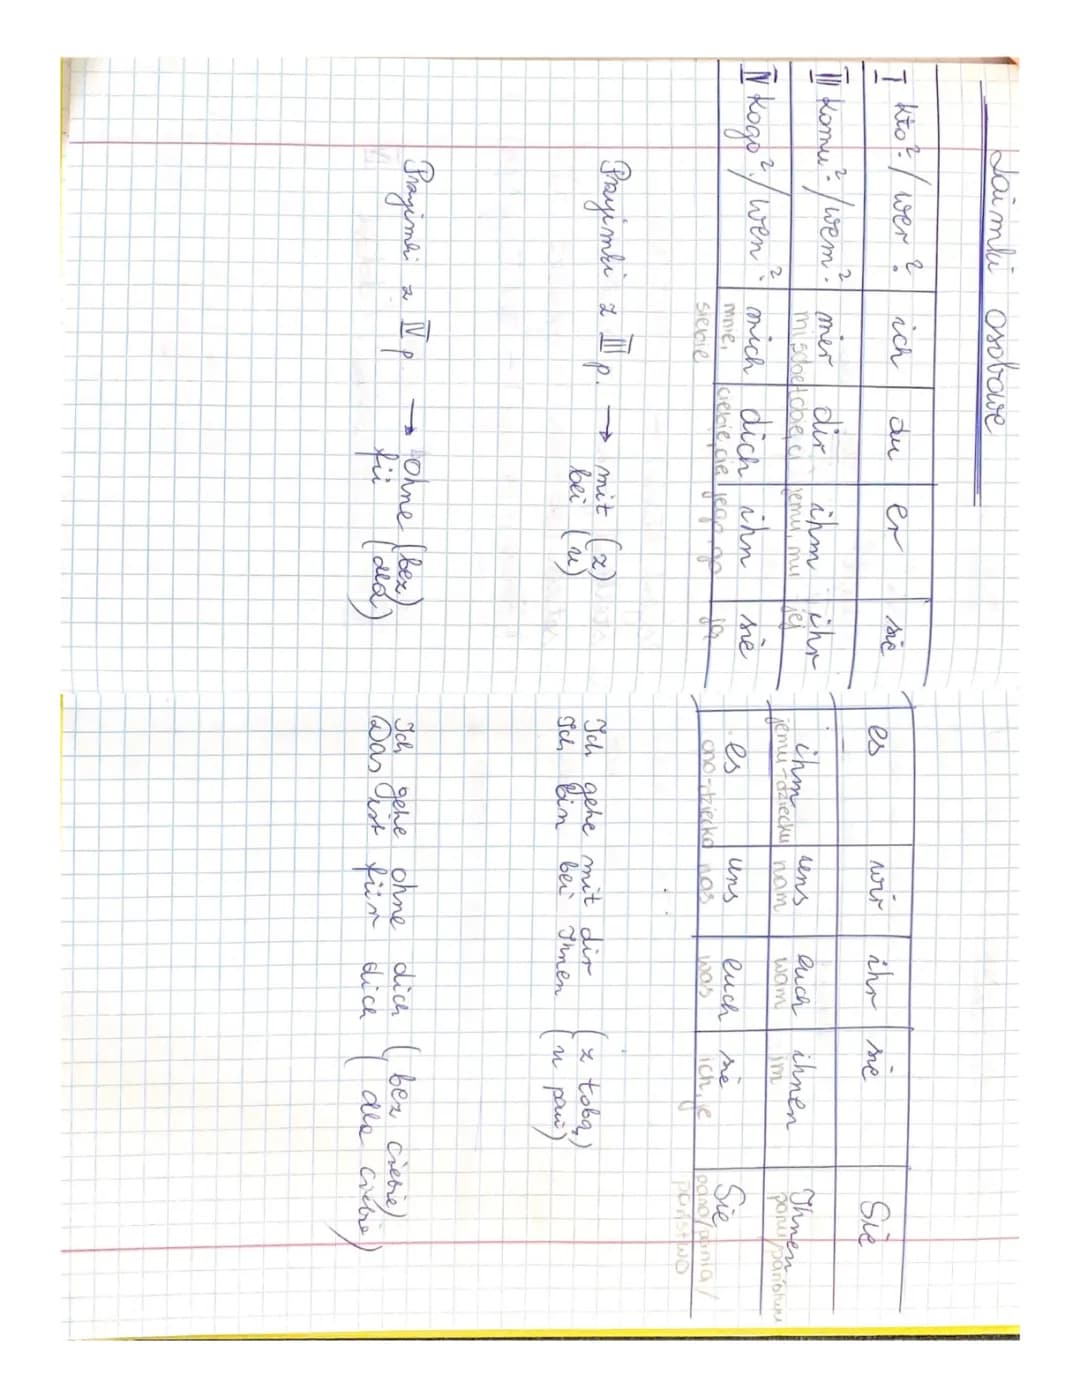 Zaimki osobowe
I kto?/wer? ich du er sie es wir ihr sie Sie
III komu?/wem? mir dir ihm ihr ihm uns euch ihnen Ihnen
jemu, mu jej jemu-dziecku nam wam im
IV kogo?/wen? mich dich ihn sie es uns euch sie Sie
mnie, ciebie, cię jego, go ją ono-dziecko nas was ich, je pana/pania/
siebie państwo
Przyimki z III p. → mit (z) Ich gehe mit dir (z tobą)
bei (u) Ich bin bei Ihnen (u pani)
Przyimki z IV p. → ohne (bez) Ich gehe ohne dich (bez ciebie)
fü (dla) Das ist für dich (dla ciebie)